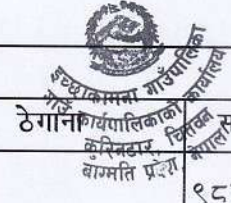 इच्छाकामना गाउँपालिका
गाउँ कार्यपालिकाको कार्यालय
ठेगाना
कुरिनटार, चितवन
बागमति प्रदेश नेपाल
स
९८